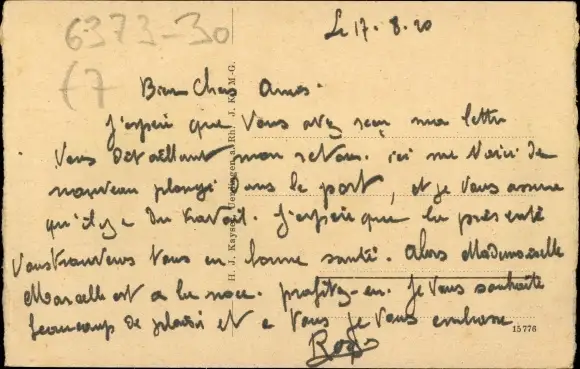 6373-30
(7
Le 17.8.20
Bien Chers Amis.
J'espère que Vous avez reçu ma lettre
Vous détaillant mon retour. ici me Voici de
nouveau plongé dans le port, et je Vous assure
qu'il y a du travail. J'espère que la présente
Vous trouvera tous en bonne santé. Alors Mademoiselle
Marcelle est a la noce. profitez-en. Je Vous souhaite
beaucoup de plaisir et a tous je Vous embrasse
H. J. Kayser, a. Rh. J. K. M.-G.
15776